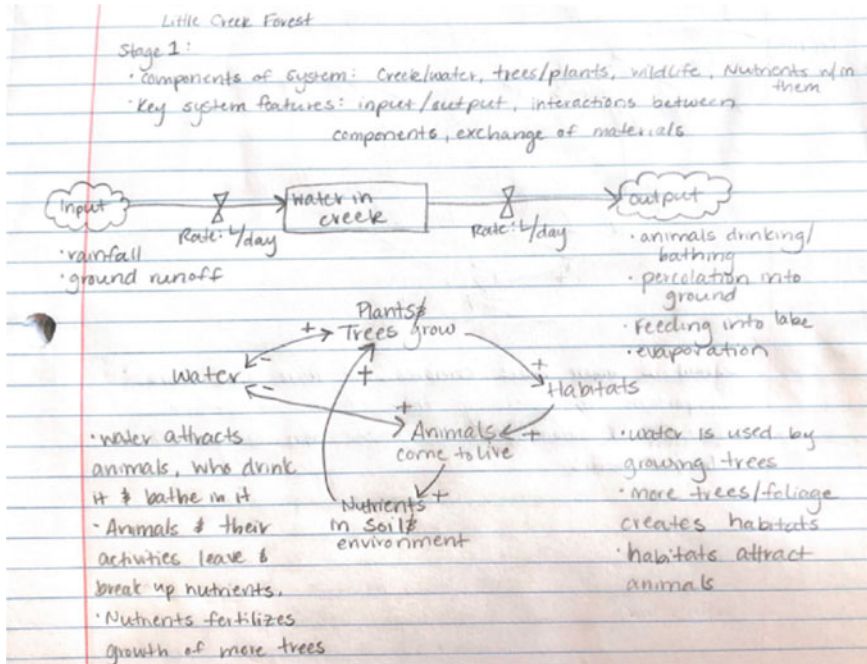 Little Creek Forest
Stage 1:
· Components of system: Creek/water, trees/plants, wildlife, Nutrients w/in them
· Key system features: input/output, interactions between
components, exchange of materials
Input
Rate: L/day
water in
creek
Rate: L/day
output
· rainfall
· ground runoff
· animals drinking/
bathing
· percolation into
ground
· Feeding into lake
· evaporation
Plants &
Trees grow
+
-
+
water
-
+
+
Habitats
+
Animals
come to live
+
Nutrients
in soil &
environment
· water attracts
animals, who drink
it & bathe in it
· Animals & their
activities leave &
break up nutrients.
· Nutrients fertilizes
growth of more trees
· water is used by
growing trees
· more trees/foliage
creates habitats
· habitats attract
animals